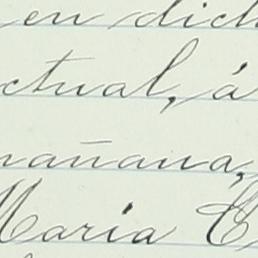 en dich
ctual, á
mañana,
Maria C